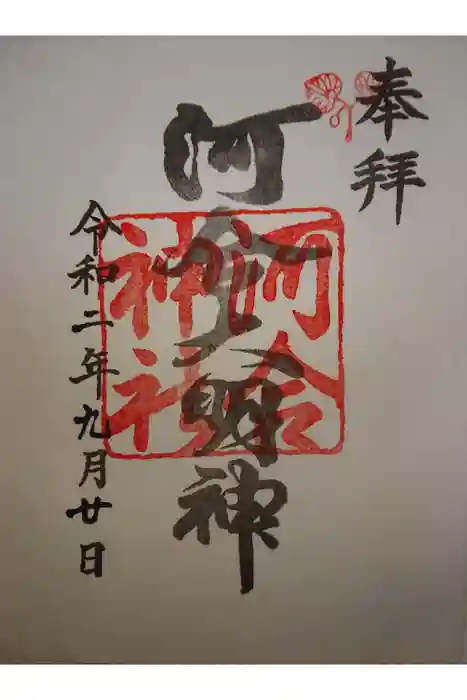 奉拝
河合神
河合
神社
令和二年九月廿日